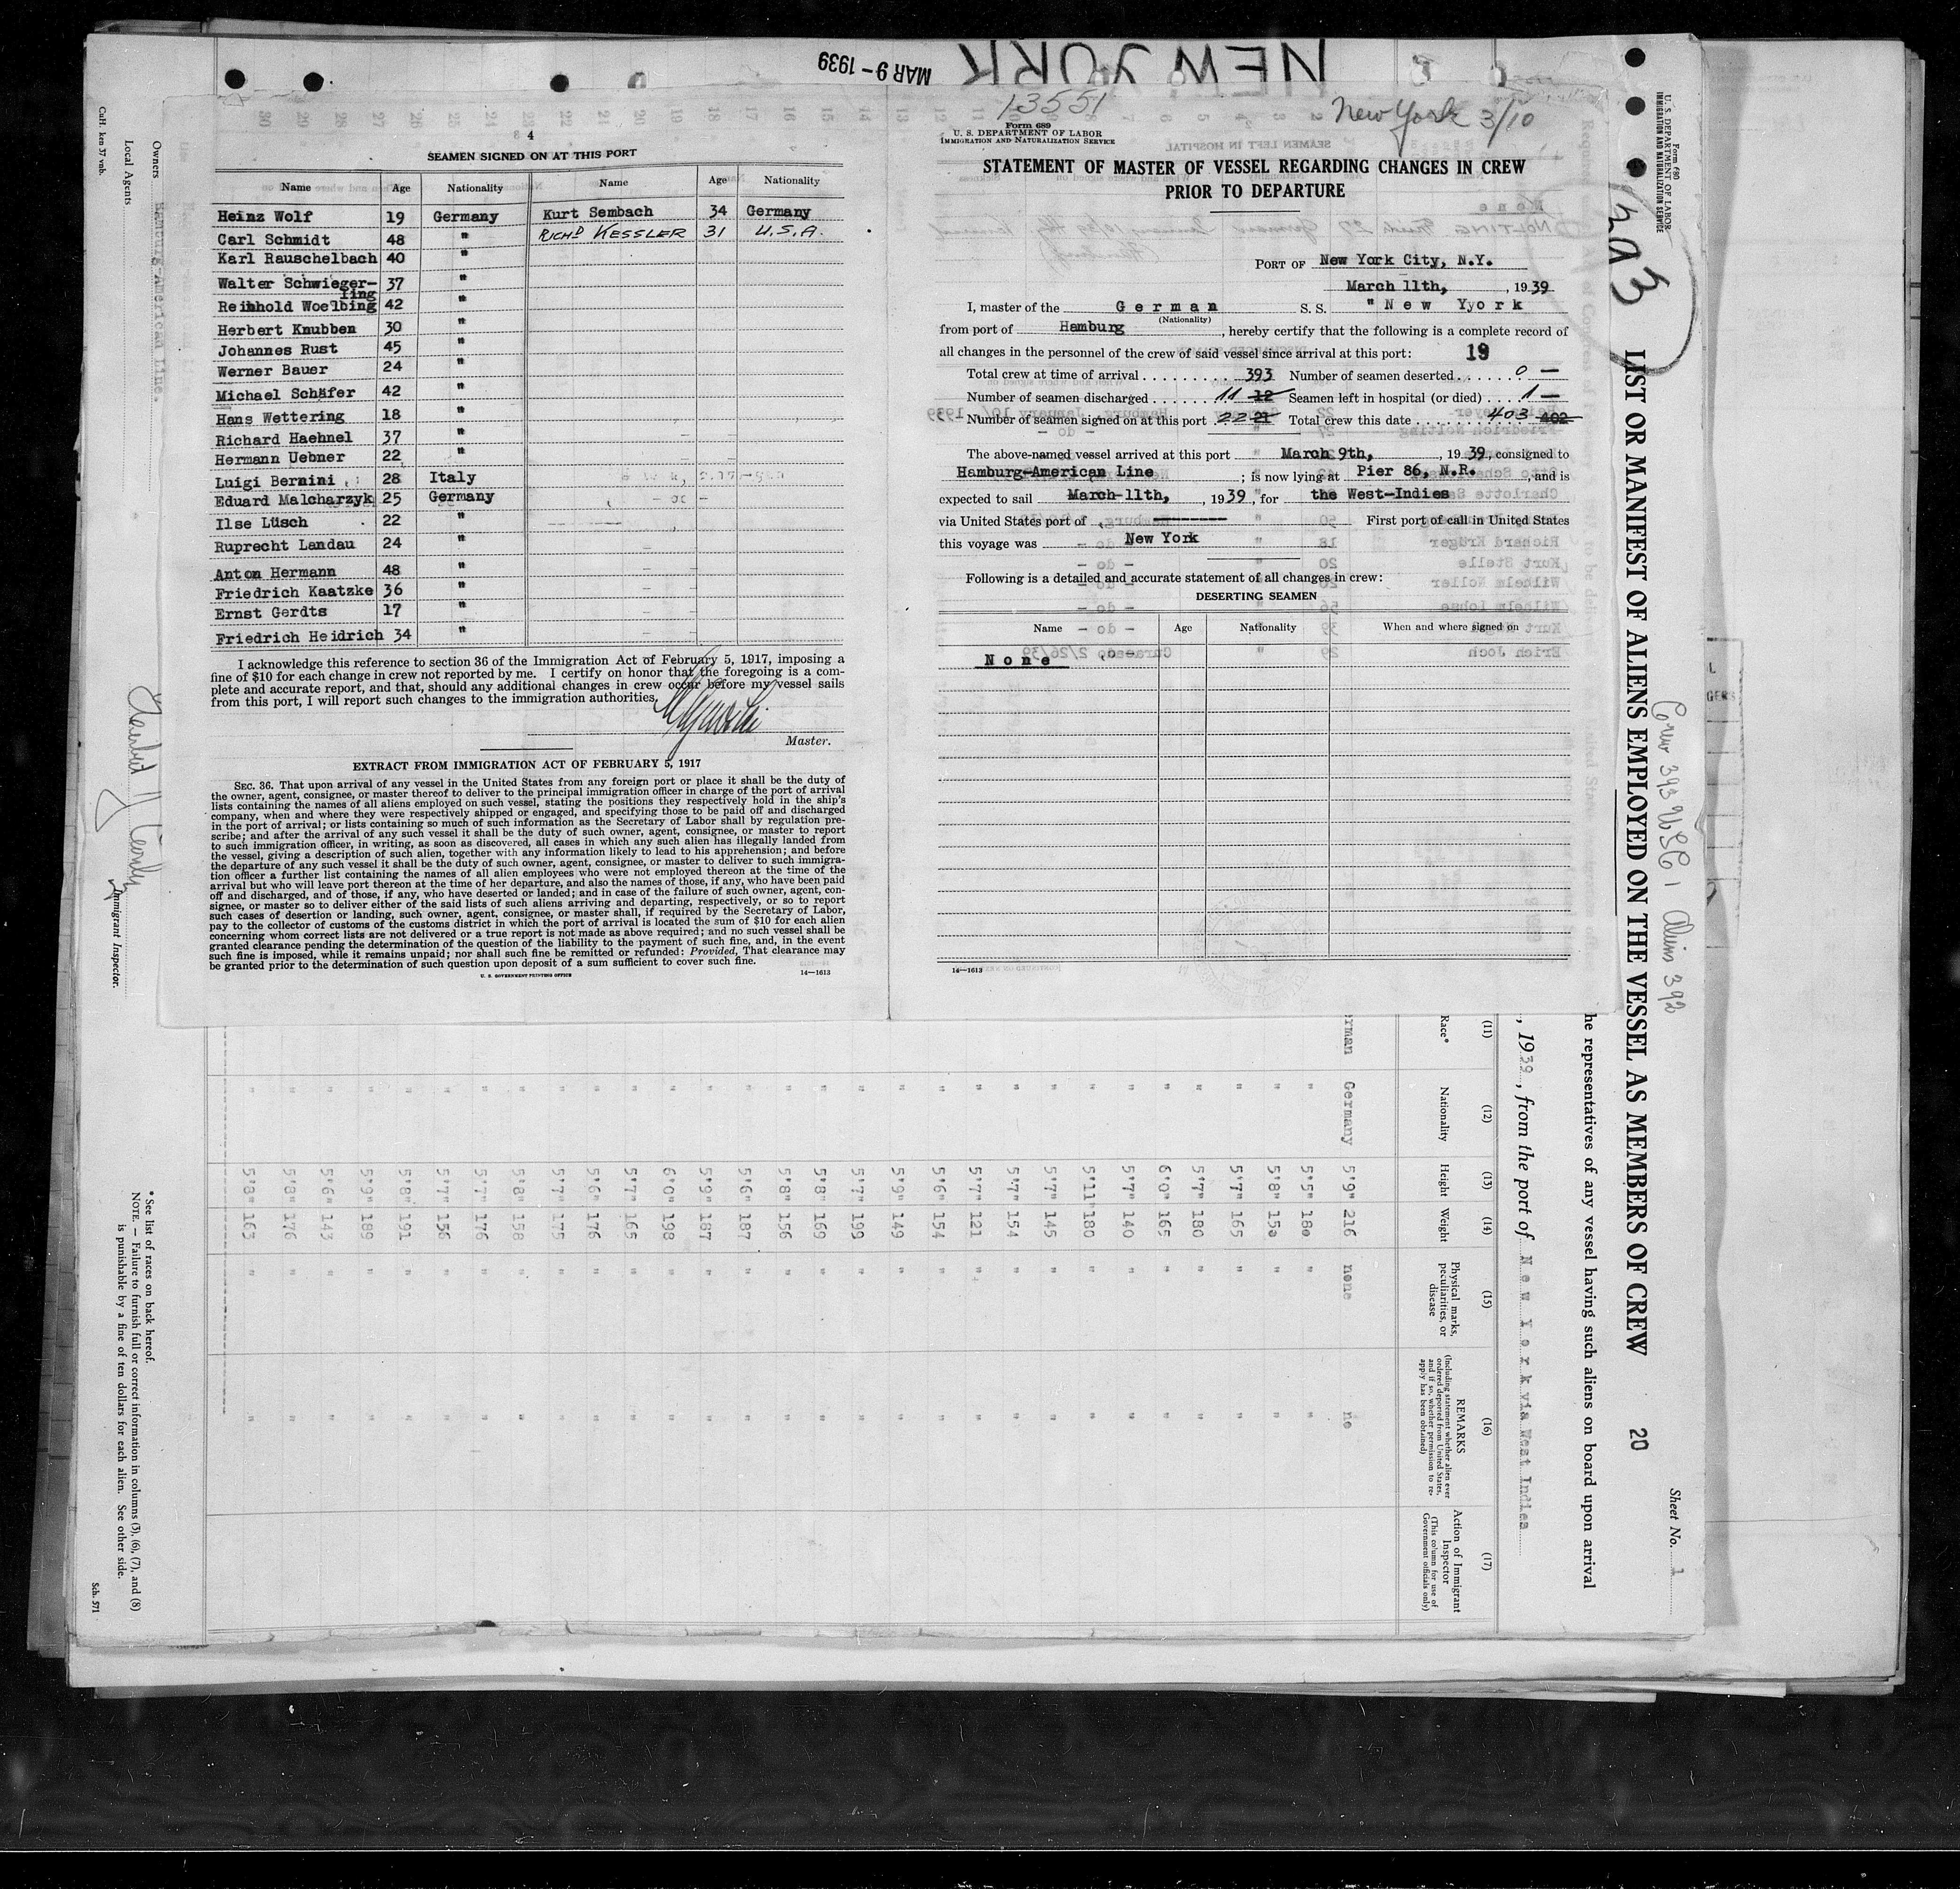 MAR 9-1939 NEW YORK
13551
New York 3/10
4
SEAMEN SIGNED ON AT THIS PORT
Name Age Nationality Name Age Nationality
Heinz Wolf 19 Germany Kurt Sembach 34 Germany
Carl Schmidt 48 " RICHD KESSLER 31 U.S.A.
Karl Rauschelbach 40 "
Walter Schwieger-ling 37 "
Reinhold Woelbing 42 "
Herbert Knubben 30 "
Johannes Rust 45 "
Werner Bauer 24 "
Michael Schäfer 42 "
Hans Wettering 18 "
Richard Haehnel 37 "
Hermann Uebner 22 "
Luigi Bernini 28 Italy
Eduard Malcharzyk 25 Germany
Ilse Lüsch 22 "
Ruprecht Landau 24 "
Anton Hermann 48 "
Friedrich Kaatzke 36 "
Ernst Gerdts 17 "
Friedrich Heidrich 34 "
I acknowledge this reference to section 36 of the Immigration Act of February 5, 1917, imposing a
fine of $10 for each change in crew not reported by me. I certify on honor that the foregoing is a com-
plete and accurate report, and that, should any additional changes in crew occur before my vessel sails
from this port, I will report such changes to the immigration authorities.
Master.
EXTRACT FROM IMMIGRATION ACT OF FEBRUARY 5, 1917
SEC. 36. That upon arrival of any vessel in the United States from any foreign port or place it shall be the duty of
the owner, agent, consignee, or master thereof to deliver to the principal immigration officer in charge of the port of arrival
lists containing the names of all aliens employed on such vessel, stating the positions they respectively hold in the ship's
company, when and where they were respectively shipped or engaged, and specifying those to be paid off and discharged
in the port of arrival; or lists containing so much of such information as the Secretary of Labor shall by regulation pre-
scribe; and after the arrival of any such vessel it shall be the duty of such owner, agent, consignee, or master to report
to such immigration officer, in writing, as soon as discovered, all cases in which any such alien has illegally landed from
the vessel, giving a description of such alien, together with any information likely to lead to his apprehension; and before
the departure of any such vessel it shall be the duty of such owner, agent, consignee, or master to deliver to such immigra-
tion officer a further list containing the names of all alien employees who were not employed thereon at the time of the
arrival but who will leave port thereon at the time of her departure, and also the names of those, if any, who have been paid
off and discharged, and of those, if any, who have deserted or landed; and in case of the failure of such owner, agent, con-
signee, or master so to deliver either of the said lists of such aliens arriving and departing, respectively, or so to report
such cases of desertion or landing, such owner, agent, consignee, or master shall, if required by the Secretary of Labor,
pay to the collector of customs of the customs district in which the port of arrival is located the sum of $10 for each alien
concerning whom correct lists are not delivered or a true report is not made as above required; and no such vessel shall be
granted clearance pending the determination of the question of the liability to the payment of such fine, and, in the event
such fine is imposed, while it remains unpaid; nor shall such fine be remitted or refunded: Provided, That clearance may
be granted prior to the determination of such question upon deposit of a sum sufficient to cover such fine.
U. S. GOVERNMENT PRINTING OFFICE 14—1613
Form 689
U. S. DEPARTMENT OF LABOR
IMMIGRATION AND NATURALIZATION SERVICE
STATEMENT OF MASTER OF VESSEL REGARDING CHANGES IN CREW
PRIOR TO DEPARTURE
PORT OF New York City, N.Y.
March 11th, , 1939
I, master of the German S. S. "New Yyork
(Nationality)
from port of Hamburg, hereby certify that the following is a complete record of
all changes in the personnel of the crew of said vessel since arrival at this port: 19
Total crew at time of arrival 393 Number of seamen deserted 0 —
Number of seamen discharged 11 12 Seamen left in hospital (or died) 1 —
Number of seamen signed on at this port 22 21 Total crew this date 403 402
The above-named vessel arrived at this port March 9th, , 1939, consigned to
Hamburg-American Line ; is now lying at Pier 86, N.R. , and is
expected to sail March 11th, , 1939, for the West-Indies
via United States port of -------- First port of call in United States
this voyage was New York
Following is a detailed and accurate statement of all changes in crew:
DESERTING SEAMEN
Name Age Nationality When and where signed on
None
14—1613
Form 680
U. S. DEPARTMENT OF LABOR
IMMIGRATION AND NATURALIZATION SERVICE
LIST OR MANIFEST OF ALIENS EMPLOYED ON THE VESSEL AS MEMBERS OF CREW 20
Sheet No. 1
Crew 393 USC 1 Aliens 392
he representatives of any vessel having such aliens on board upon arrival
, 1939, from the port of New York via West Indies
(11) (12) (13) (14) (15) (16) (17)
Race* Nationality Height Weight Physical marks, peculiarities, or disease REMARKS (Including statement whether alien ever ordered deported from United States, and if so, whether permission to re-apply has been obtained) Action of Immigrant Inspector (This column for use of Government officials only)
rman Germany 5'9" 216 none no
" 5'5" 180 " "
" 5'8" 150 " "
" 5'7" 165 " "
" 5'7" 180 " "
" 6'0" 165 " "
" 5'7" 140 " "
" 5'11" 180 " "
" 5'7" 145 " "
" 5'7" 154 " "
" 5'7" 121 " "
" 5'6" 154 " "
" 5'9" 149 " "
" 5'7" 199 " "
" 5'8" 169 " "
" 5'8" 156 " "
" 5'6" 187 " "
" 5'9" 187 " "
" 6'0" 198 " "
" 5'7" 165 " "
" 5'6" 176 " "
" 5'7" 175 " "
" 5'8" 158 " "
" 5'7" 176 " "
" 5'7" 156 " "
" 5'8" 191 " "
" 5'9" 189 " "
" 5'6" 143 " "
" 5'8" 176 " "
" 5'8" 163 " "
Owners Hamburg-American Line.
Local Agents
Immigrant Inspector.
* See list of races on back hereof.
NOTE.—Failure to furnish full or correct information in columns (3), (6), (7), and (8)
is punishable by a fine of ten dollars for each alien. See other side.
CuH. ken 37 vnb.
Sch. 571